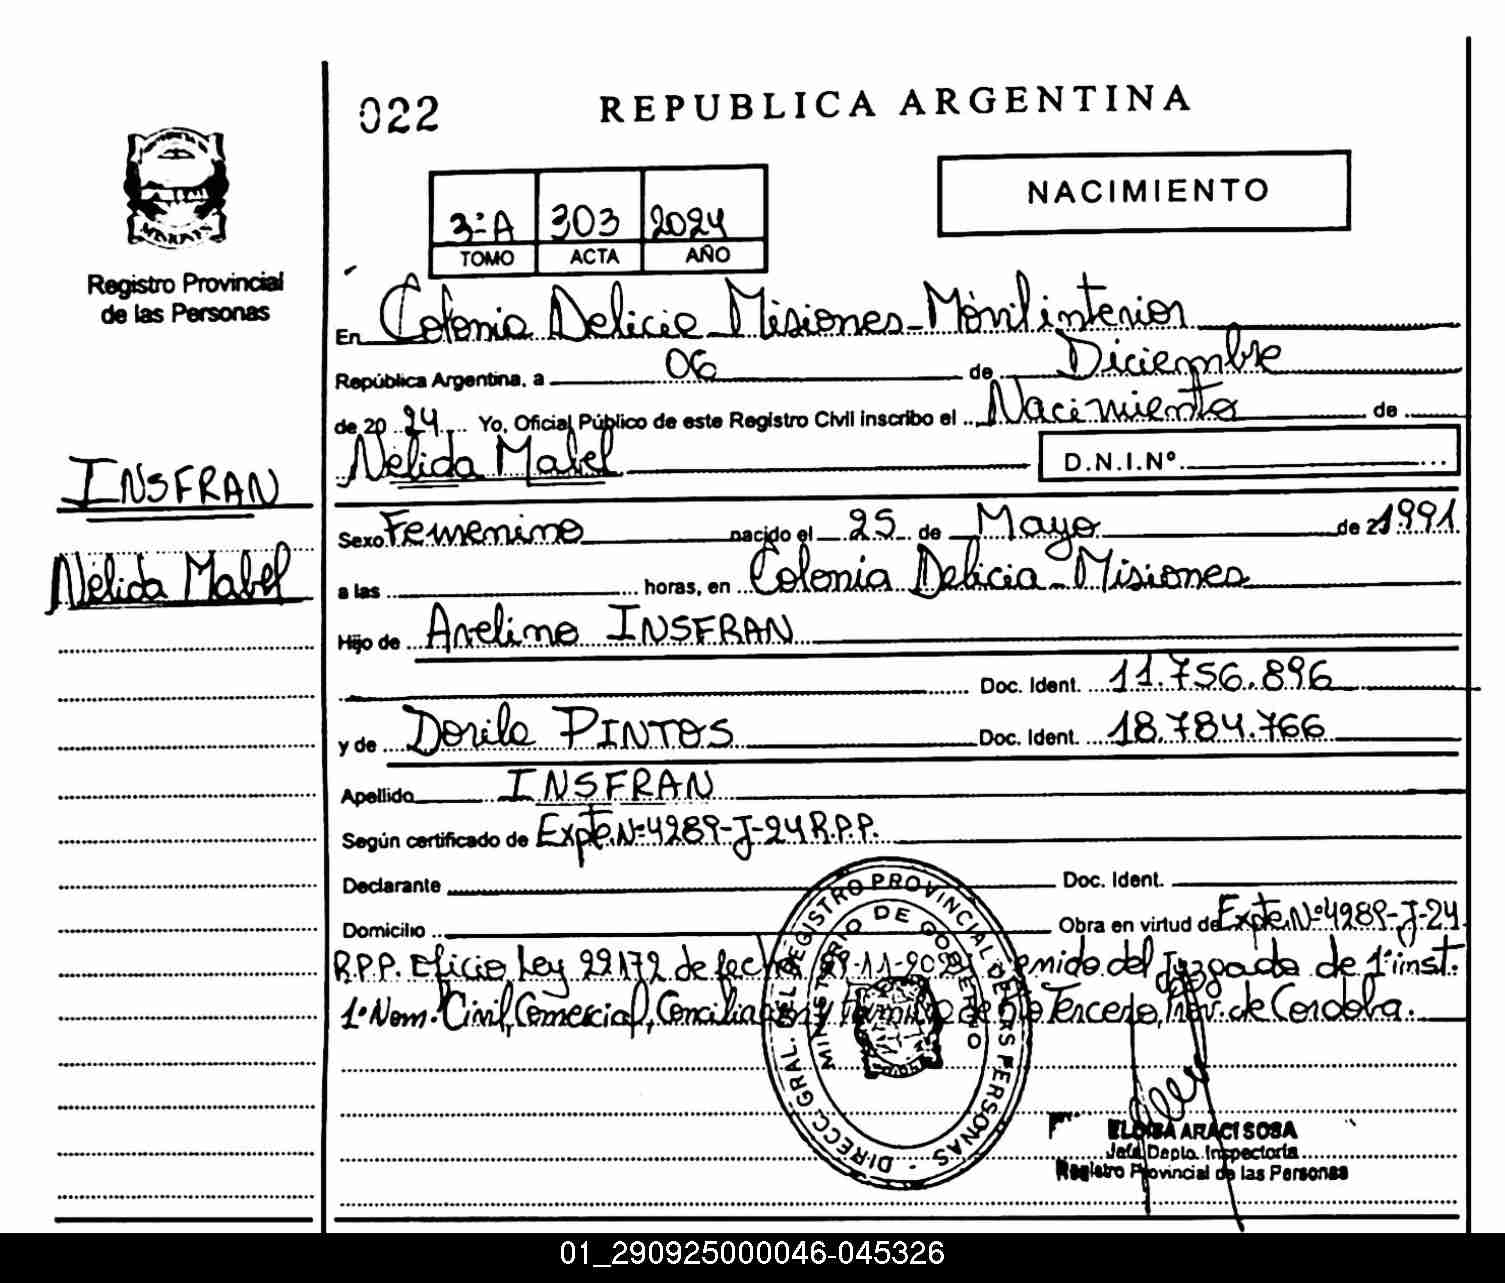 022
REPUBLICA ARGENTINA
MISIONES
Registro Provincial
de las Personas
3ª A 303 2024
TOMO ACTA AÑO
NACIMIENTO
En Colonia Delicia Misiones - Móvil interior
República Argentina, a 06 de Diciembre
de 20 24 Yo, Oficial Público de este Registro Civil inscribo el Nacimiento de
Nélida Mabel D.N.I.Nº
INSFRAN
Nélida Mabel
Sexo Femenino nacido el 25 de Mayo de 1991
a las horas, en Colonia Delicia - Misiones
Hijo de Avelino INSFRAN
Doc. Ident. 11.756.896
y de Dorila PINTOS Doc. Ident. 18.784.766
Apellido INSFRAN
Según certificado de Expte. Nº 4289-J-24 R.P.P.
Declarante Doc. Ident.
Domicilio Obra en virtud de Expte. Nº 4289-J-24
R.P.P. Oficio Ley 22172 de fecha del Juzgado de 1ª inst.
1ª Nom. Civil, Comercial, Conciliación y Familia de Río Tercero, Prov. de Cordoba.
DIRECC. GRAL. DEL REGISTRO PROVINCIAL DE LAS PERSONAS
MINISTERIO DE GOBIERNO
ELOISA ARACI SOSA
Jefa Depto. Inspectoría
Registro Provincial de las Personas
01_290925000046-045326